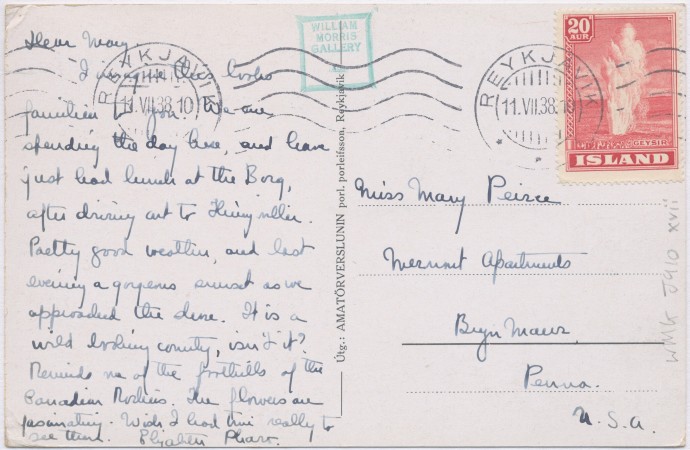 WILLIAM
MORRIS
GALLERY
REYKJAVIK
11.VII.38.10
REYKJAVIK
11.VII.38.10
20
AUR
GEYSIR
ISLAND
Dear May
I imagine this looks
familiar to you. We are
spending the day here, and have
just had lunch at the Borg,
after driving out to
Pretty good weather, and last
evening a gorgeous sunset as we
approached the shore. It is a
wild looking country, isn't it?
Reminds me of the foothills of the
Canadian Rockies. The flowers are
fascinating. Wish I had time really to
see them. Elizabeth
Útg.: AMATÖRVERSLUNIN þorl. þorleifsson, Reykjavík
Miss Mary Peirce
Apartments
Bryn Mawr
Penna.
U.S.A.
WMG J910 xvii